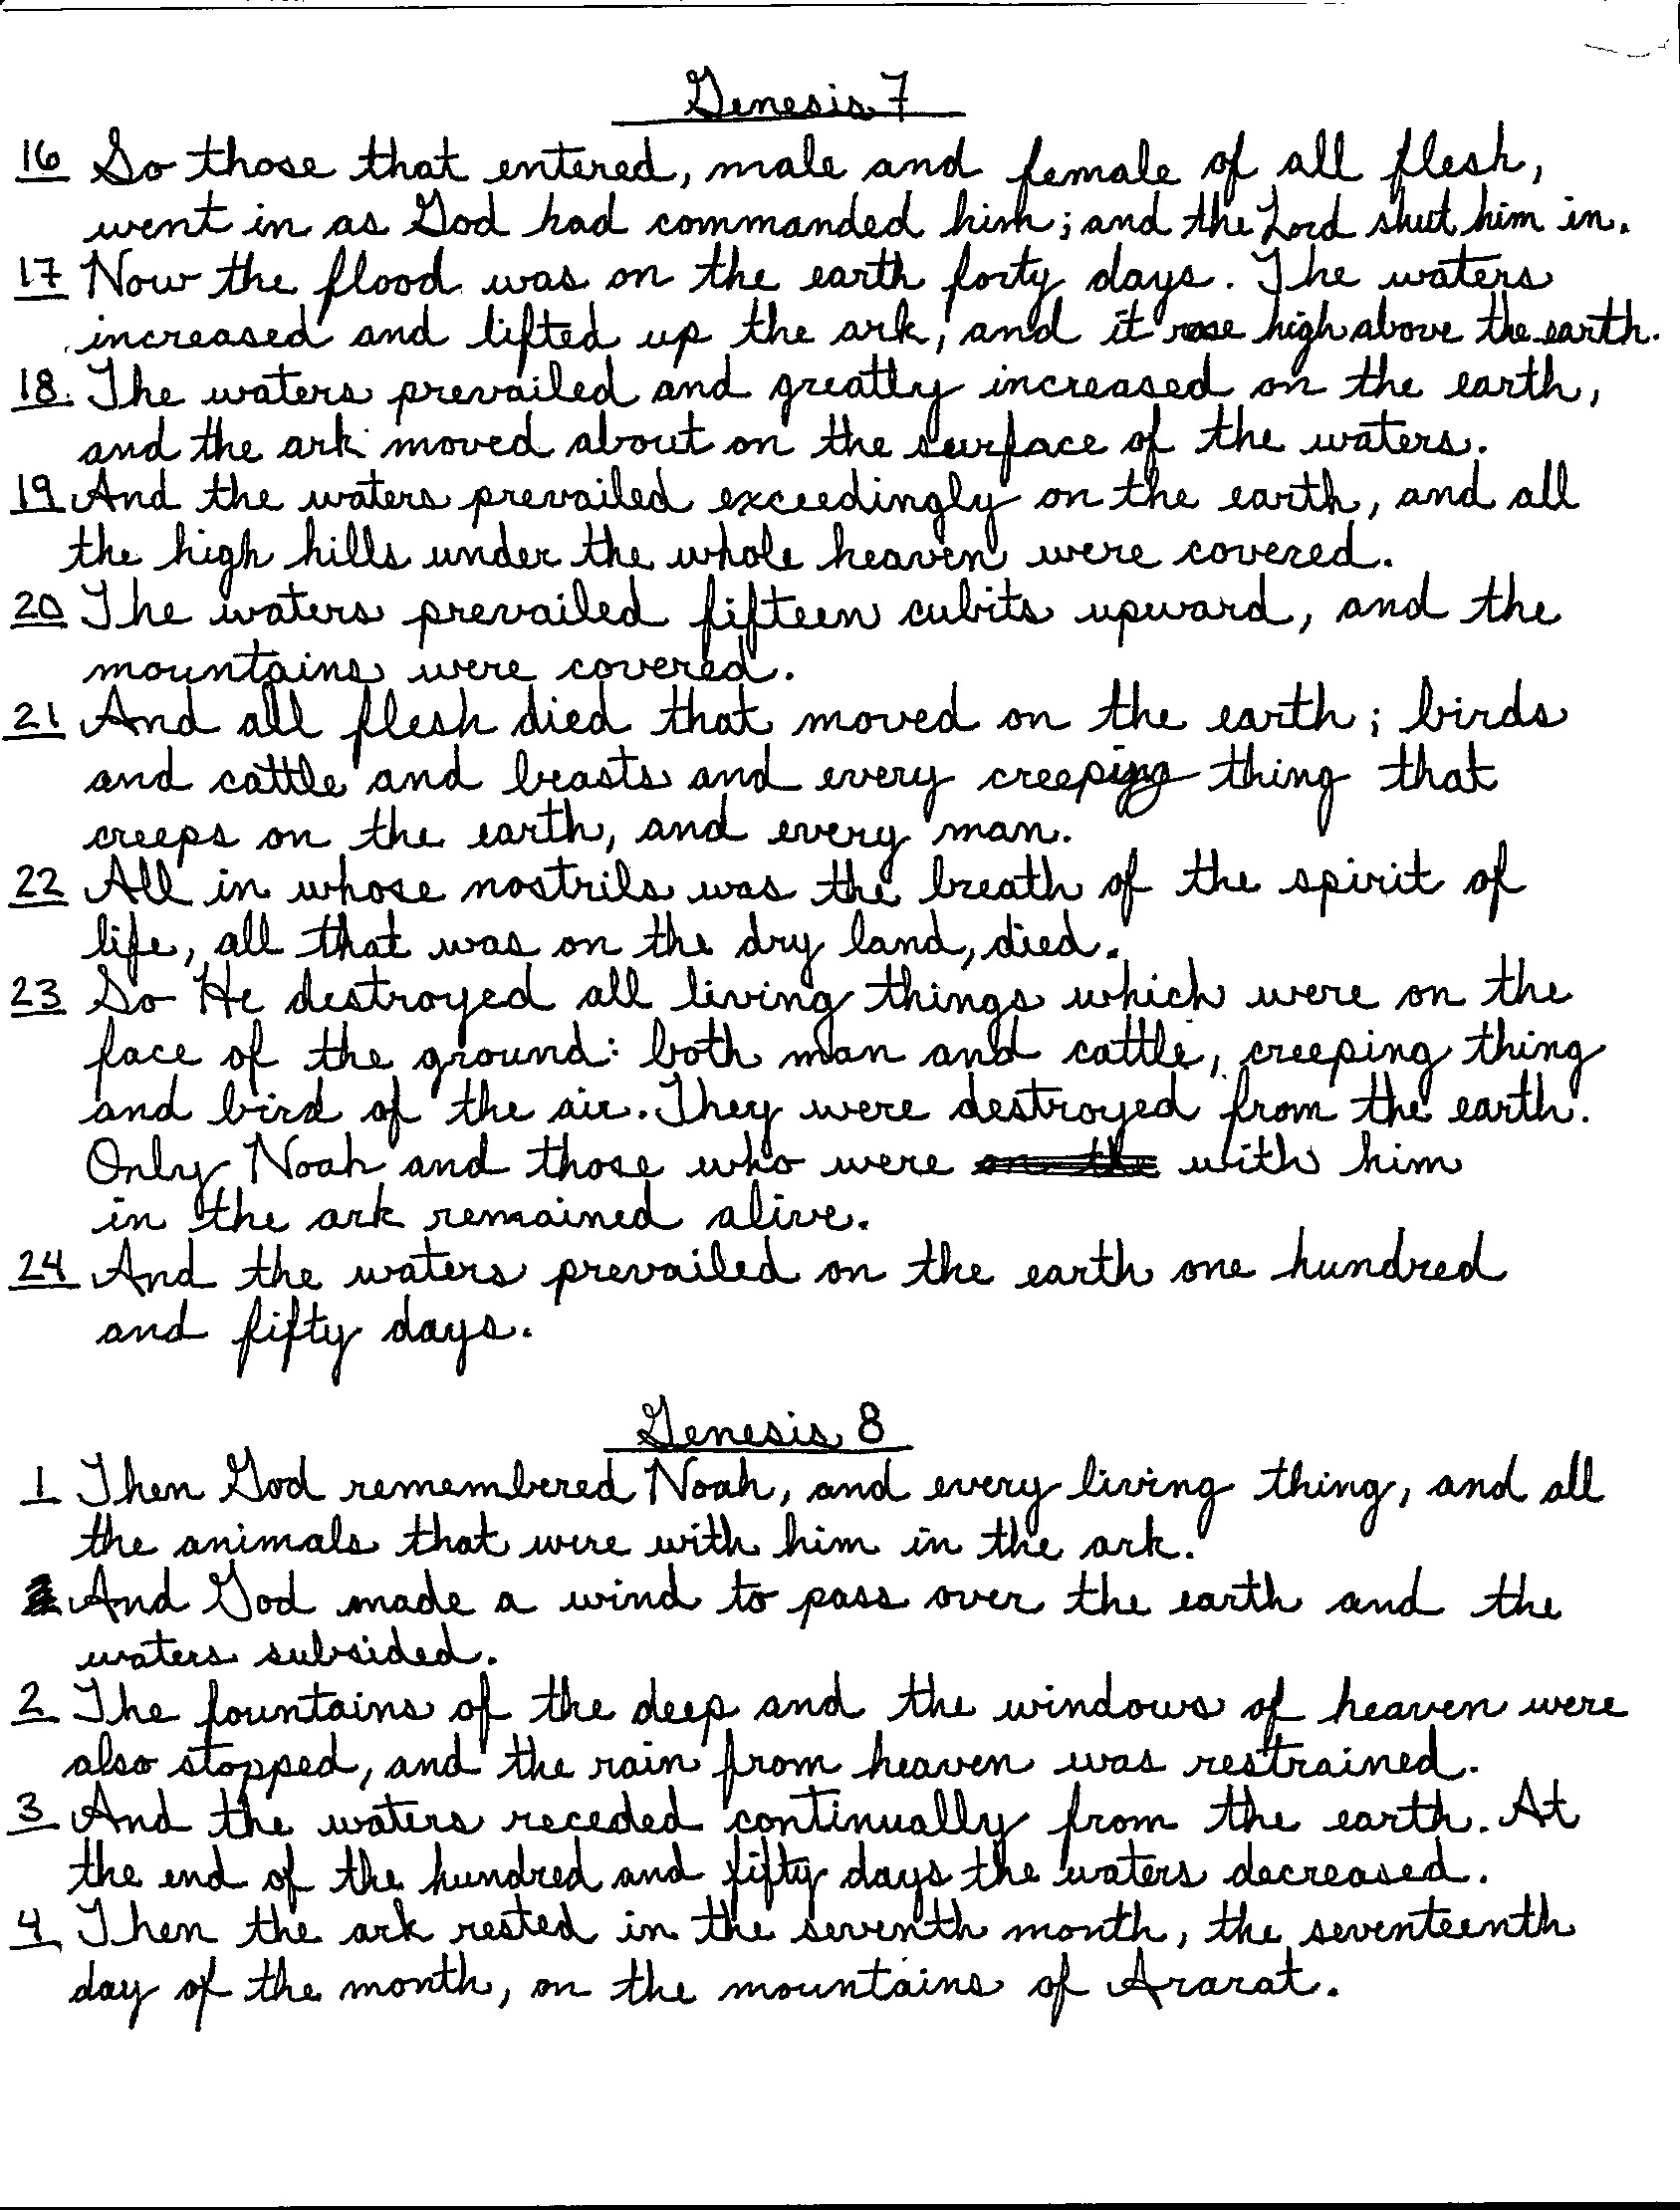 Genesis 7
16 So those that entered, male and female of all flesh,
went in as God had commanded him; and the Lord shut him in.
17 Now the flood was on the earth forty days. The waters
increased and lifted up the ark, and it rose high above the earth.
18. The waters prevailed and greatly increased on the earth,
and the ark moved about on the surface of the waters.
19 And the waters prevailed exceedingly on the earth, and all
the high hills under the whole heaven were covered.
20 The waters prevailed fifteen cubits upward, and the
mountains were covered.
21 And all flesh died that moved on the earth; birds
and cattle and beasts and every creeping thing that
creeps on the earth, and every man.
22 All in whose nostrils was the breath of the spirit of
life, all that was on the dry land, died.
23 So He destroyed all living things which were on the
face of the ground: both man and cattle, creeping thing
and bird of the air. They were destroyed from the earth.
Only Noah and those who were on the with him
in the ark remained alive.
24 And the waters prevailed on the earth one hundred
and fifty days.
Genesis 8
1 Then God remembered Noah, and every living thing, and all
the animals that were with him in the ark.
And God made a wind to pass over the earth and the
waters subsided.
2 The fountains of the deep and the windows of heaven were
also stopped, and the rain from heaven was restrained.
3 And the waters receded continually from the earth. At
the end of the hundred and fifty days the waters decreased.
4 Then the ark rested in the seventh month, the seventeenth
day of the month, on the mountains of Ararat.